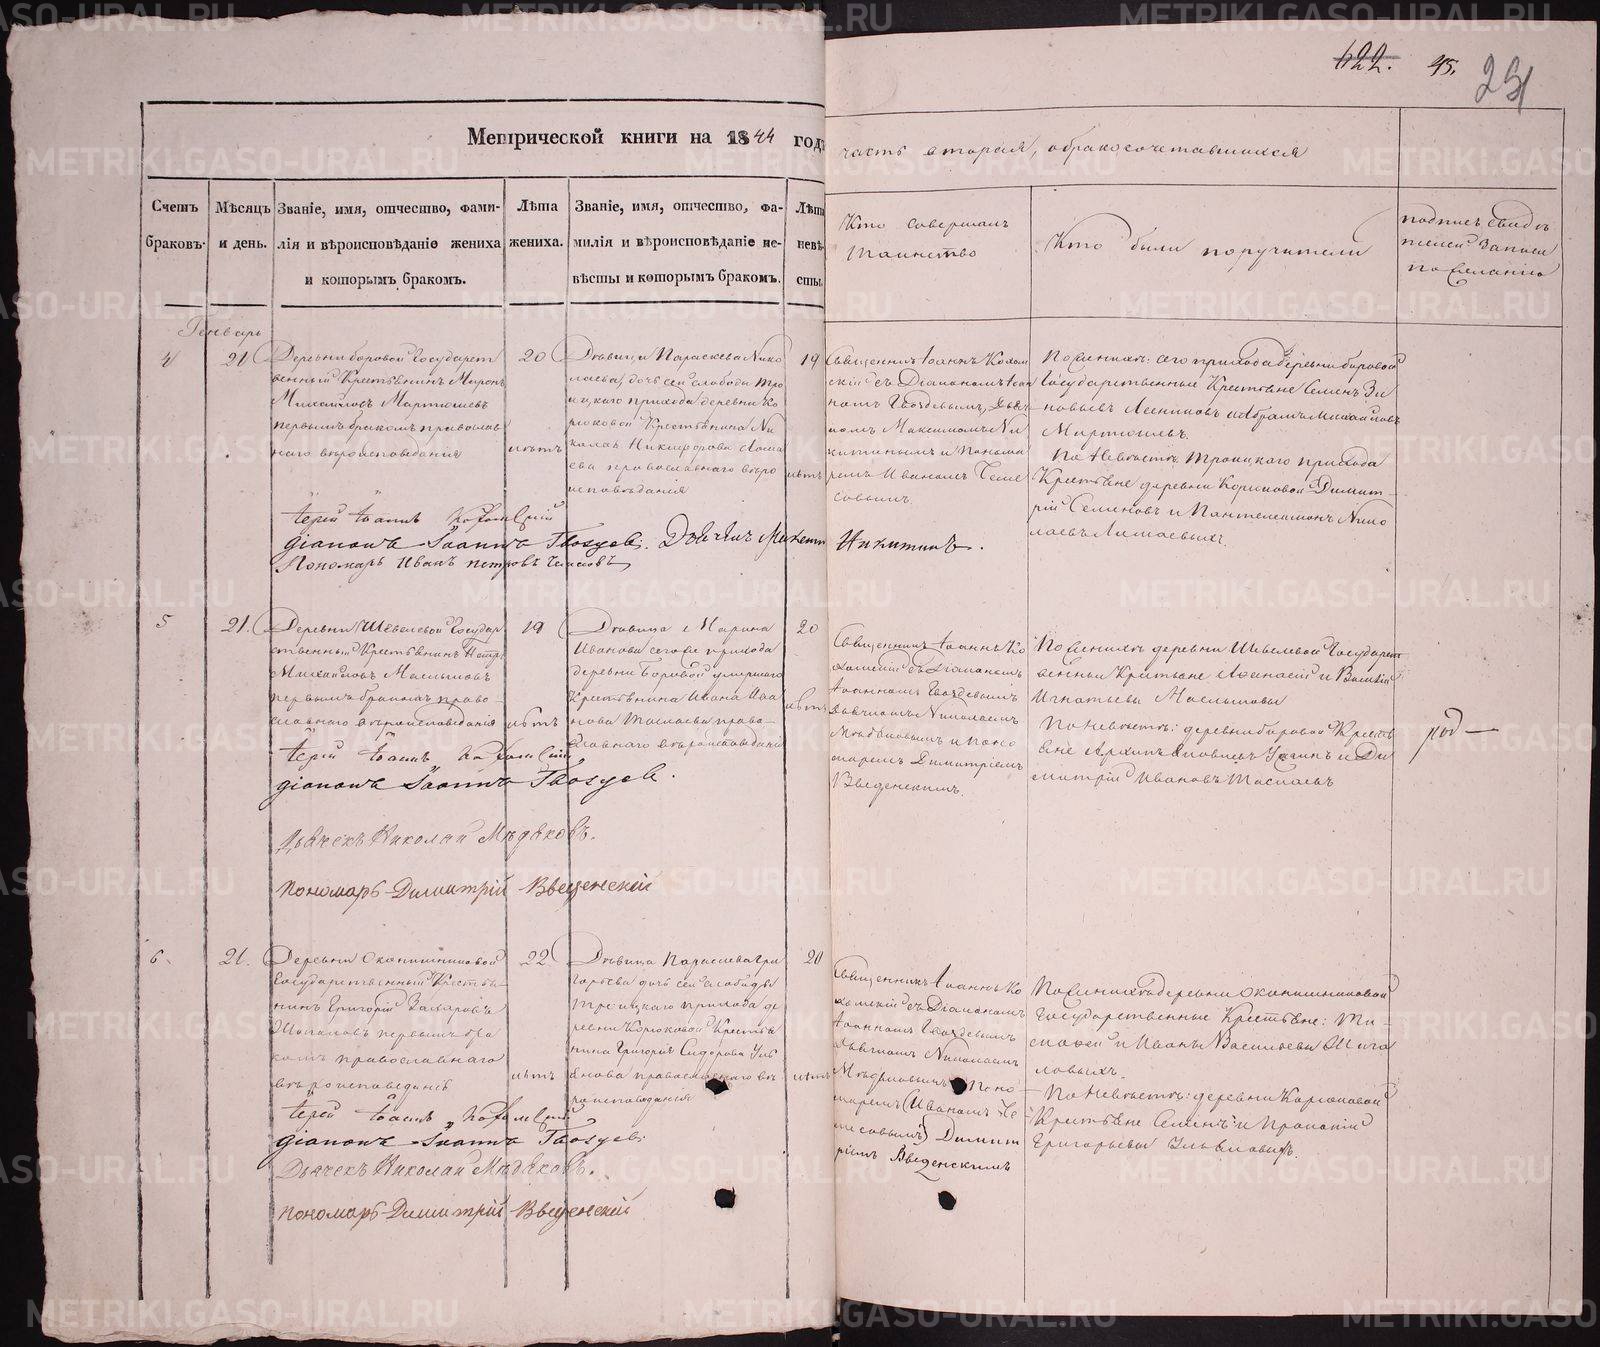 622. 45.
251
Метрической книги на 1844 годъ
часть вторая, о бракосочетавшихся
Счетъ браковъ.
Мѣсяцъ и день.
Званіе, имя, отчество, фами-
лія и вѣроисповѣданіе жениха
и которымъ бракомъ.
Лѣта
жениха.
Званіе, имя, отчество, фа-
милія и вѣроисповѣданіе не-
вѣсты и которымъ бракомъ.
Лѣта
невѣ-
сты.
Кто совершалъ
таинство
Кто были поручители
подпись свидѣ-
телей записи
по желанію
Генварь
4
21
Деревни Боровой Государст
венный Крестьянинъ Миронъ
Михайловъ Мартюшевъ
первымъ бракомъ православ
наго вѣроисповеданія
20
лѣтъ
Дѣвица Параскева Нико
лаева, дочь сей слободы Тро
ицкаго прихода деревни Ко
рюковой Крестьянина Ни
колая Никифорова
православнаго вѣро
исповѣданія
19
лѣтъ
Священникъ Іоаннъ Кохом
скій съ Діакономъ Іоан
номъ Гвоздевымъ, Дьяч
комъ Максимомъ Ни
китинымъ и Понома
ремъ Иваномъ Чеме
совымъ.
По женихѣ: сего прихода деревни Боровой
Государственные Крестьяне Семенъ Зи
новьевъ и Абрамъ Михайловъ
Мартюшевъ.
По Невѣстѣ Троицкаго прихода
Крестьяне деревни Корюковой Димит
рій Семеновъ и Пантелеимонъ Нико
лаевъ
Іерей Іоаннъ Кохомскій
діаконъ Іоаннъ Гвоздевъ. Дьячекъ Максимъ Никитинъ.
Пономарь Иванъ Петровъ Чемесовъ
5
21.
Деревни Шевелевой Государ
ственный Крестьянинъ Петръ
Михайловъ Масловъ
первымъ бракомъ право-
славнаго вѣроисповеданія
19
лѣтъ
Дѣвица Марина
Иванова сего же прихода
деревни Боровой умершаго
Крестьянина Ивана Ива
нова право-
славнаго вѣроисповѣданія
20
лѣтъ
Священникъ Іоаннъ Ко
хомскій съ Діакономъ
Іоанномъ Гвоздевымъ
Дьячкомъ Николаемъ
Мѣдяковымъ и Поно
маремъ Димитріемъ
Введенскимъ.
По женихѣ деревни Шевелевой Государст
венные Крестьяне Афанасій и Василій
Игнатьевы
По Невѣстѣ: деревни Боровой Крестья
не Архипъ и Ди
митрій Ивановъ
Іерей Іоаннъ Кохомскій
діаконъ Іоаннъ Гвоздевъ.
Дьячекъ Николай Мѣдяковъ.
Пономарь Димитрій Введенскій
6.
21.
Деревни
Государственный Крестья-
нинъ Григорій Захаровъ
первымъ бра
комъ православнаго
вѣроисповеданія
22
лѣтъ
Дѣвица Параскева Гри
горьева дочь сей слободы
Троицкаго прихода де
ревни Корюковой Крестья
нина Григорія Сидорова Уль
янова православнаго вѣ
роисповеданія
20
лѣтъ
Священникъ Іоаннъ Ко
хомскій съ Діакономъ
Іоанномъ Гвоздевымъ
Дьячкомъ Николаемъ
Мѣдяковымъ и Поно
маремъ (Иваномъ Че
месовымъ) Димит
ріемъ Введенскимъ
По женихѣ деревни
Государственные Крестьяне: Ти-
мофей и Иванъ Васильевы
По Невѣстѣ: деревни Корюковой
Крестьяне Семенъ и Прокопій
Григорьевы Ульяновы.
Іерей Іоаннъ Кохомскій
діаконъ Іоаннъ Гвоздевъ.
Дьячекъ Николай Мѣдяковъ.
Пономарь Димитрій Введенскій
METRIKI.GASO-URAL.RU